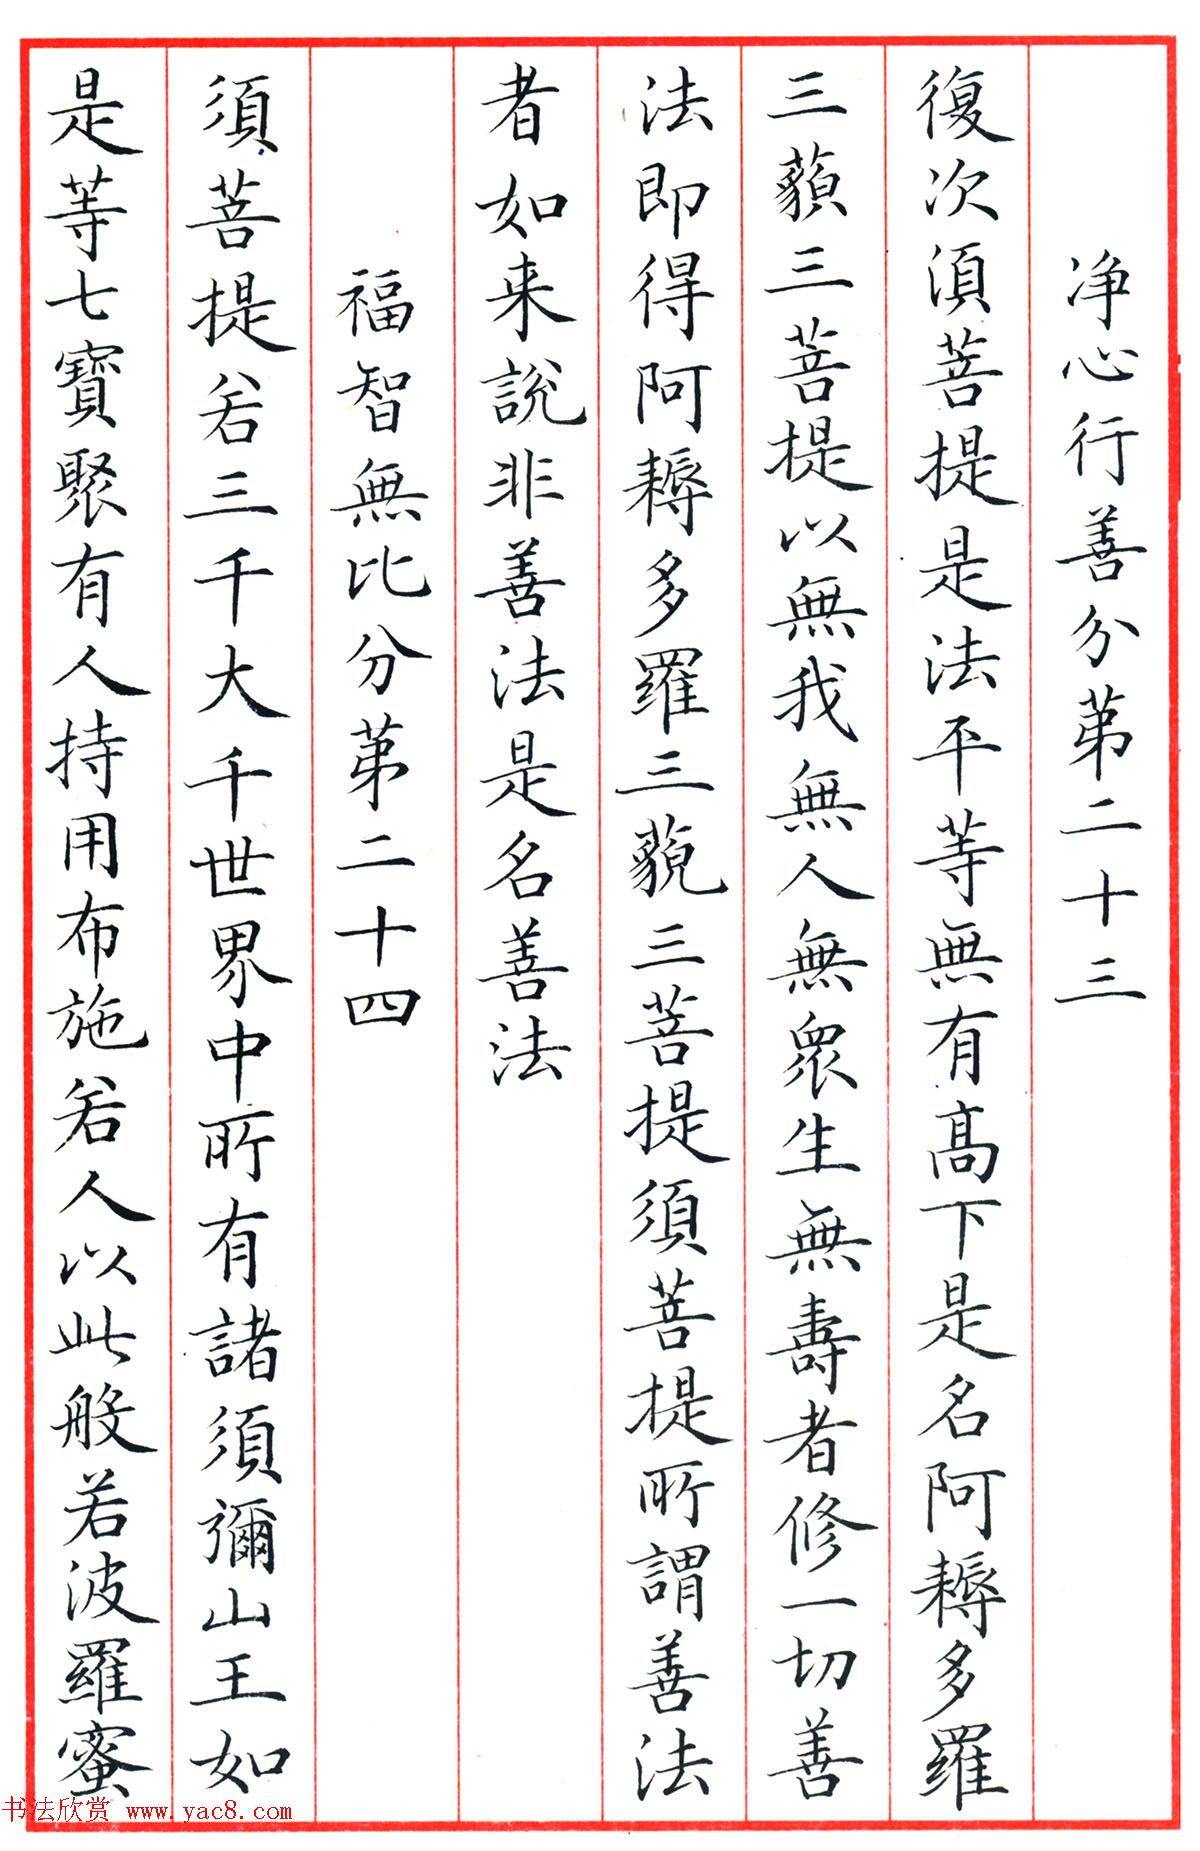 净心行善分苐二十三
復次須菩提是法平等無有髙下是名阿耨多羅
三藐三菩提以無我無人無眾生無壽者修一切善
法即得阿耨多羅三藐三菩提須菩提所謂善法
者如来説非善法是名善法
福智無比分苐二十四
須菩提若三千大千世界中所有諸須彌山王如
是等七寶聚有人持用布施若人以此般若波羅蜜
书法欣赏 www.yac8.com